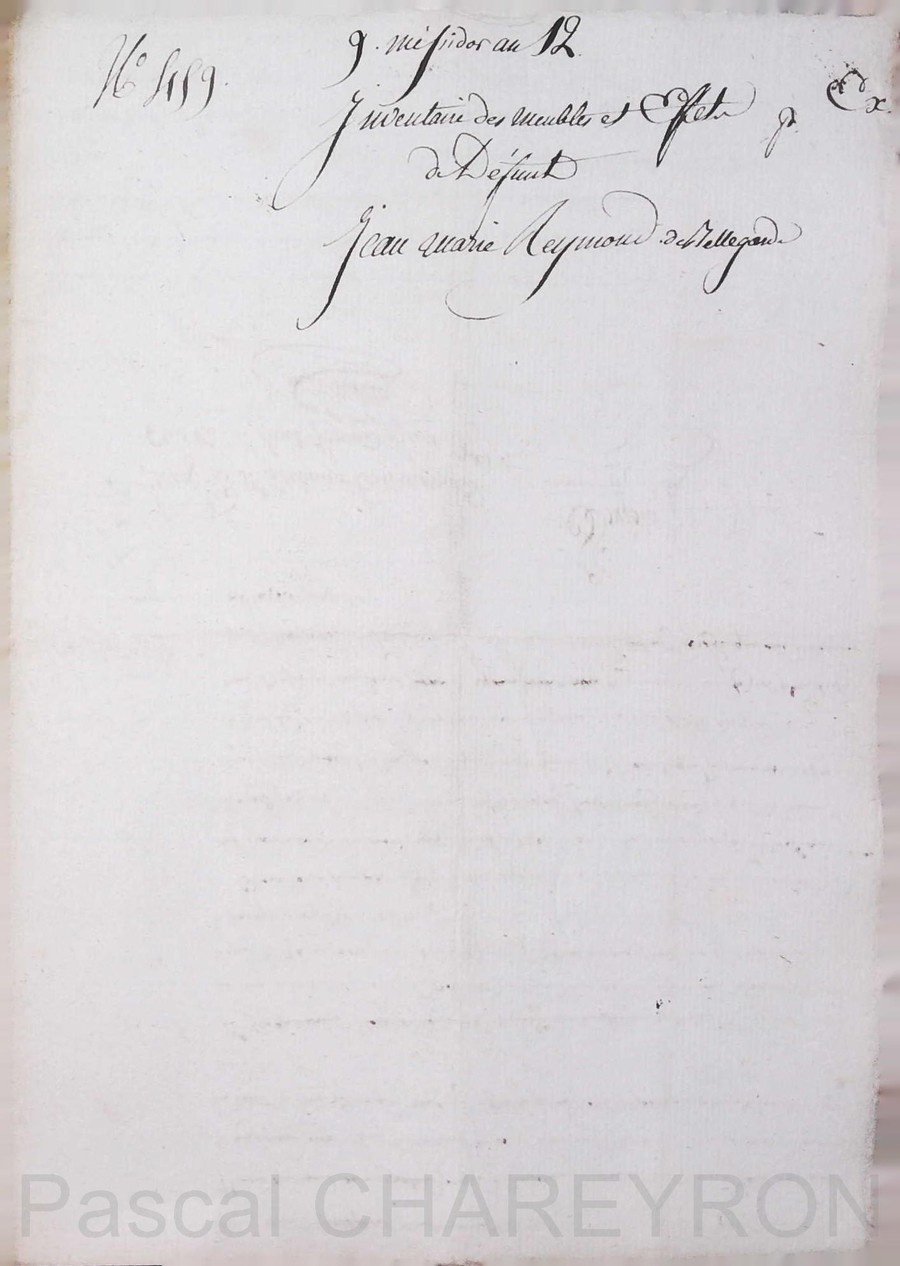 9. messidor an 12
N° 459.
Inventaire des meubles et Effets
de Défunt
Jean marie Reymond de Bellegarde
Pascal CHAREYRON